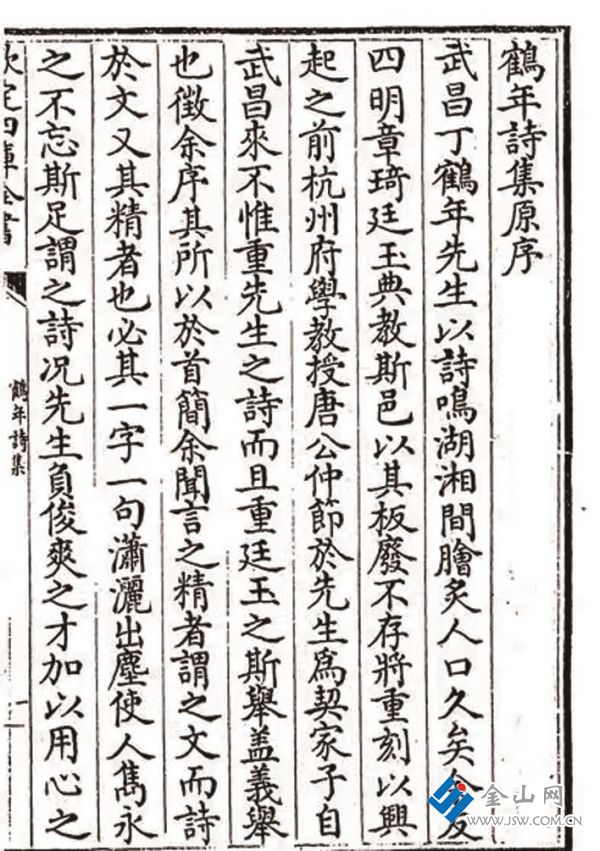 鶴年詩集原序
武昌丁鶴年先生以詩鳴湖湘間膾炙人口久矣今友
四明章琦廷玉典教斯邑以其板廢不存將重刻以興
起之前杭州府學教授唐公仲節於先生爲契家子自
武昌來不惟重先生之詩而且重廷玉之斯舉盖義舉
也徵余序其所以於首簡余聞言之精者謂之文而詩
於文又其精者也必其一字一句瀟灑出塵使人雋永
之不忘斯足謂之詩况先生負俊爽之才加以用心之
欽定四庫全書
鶴年詩集
一
金山网
www.JSW.com.cn